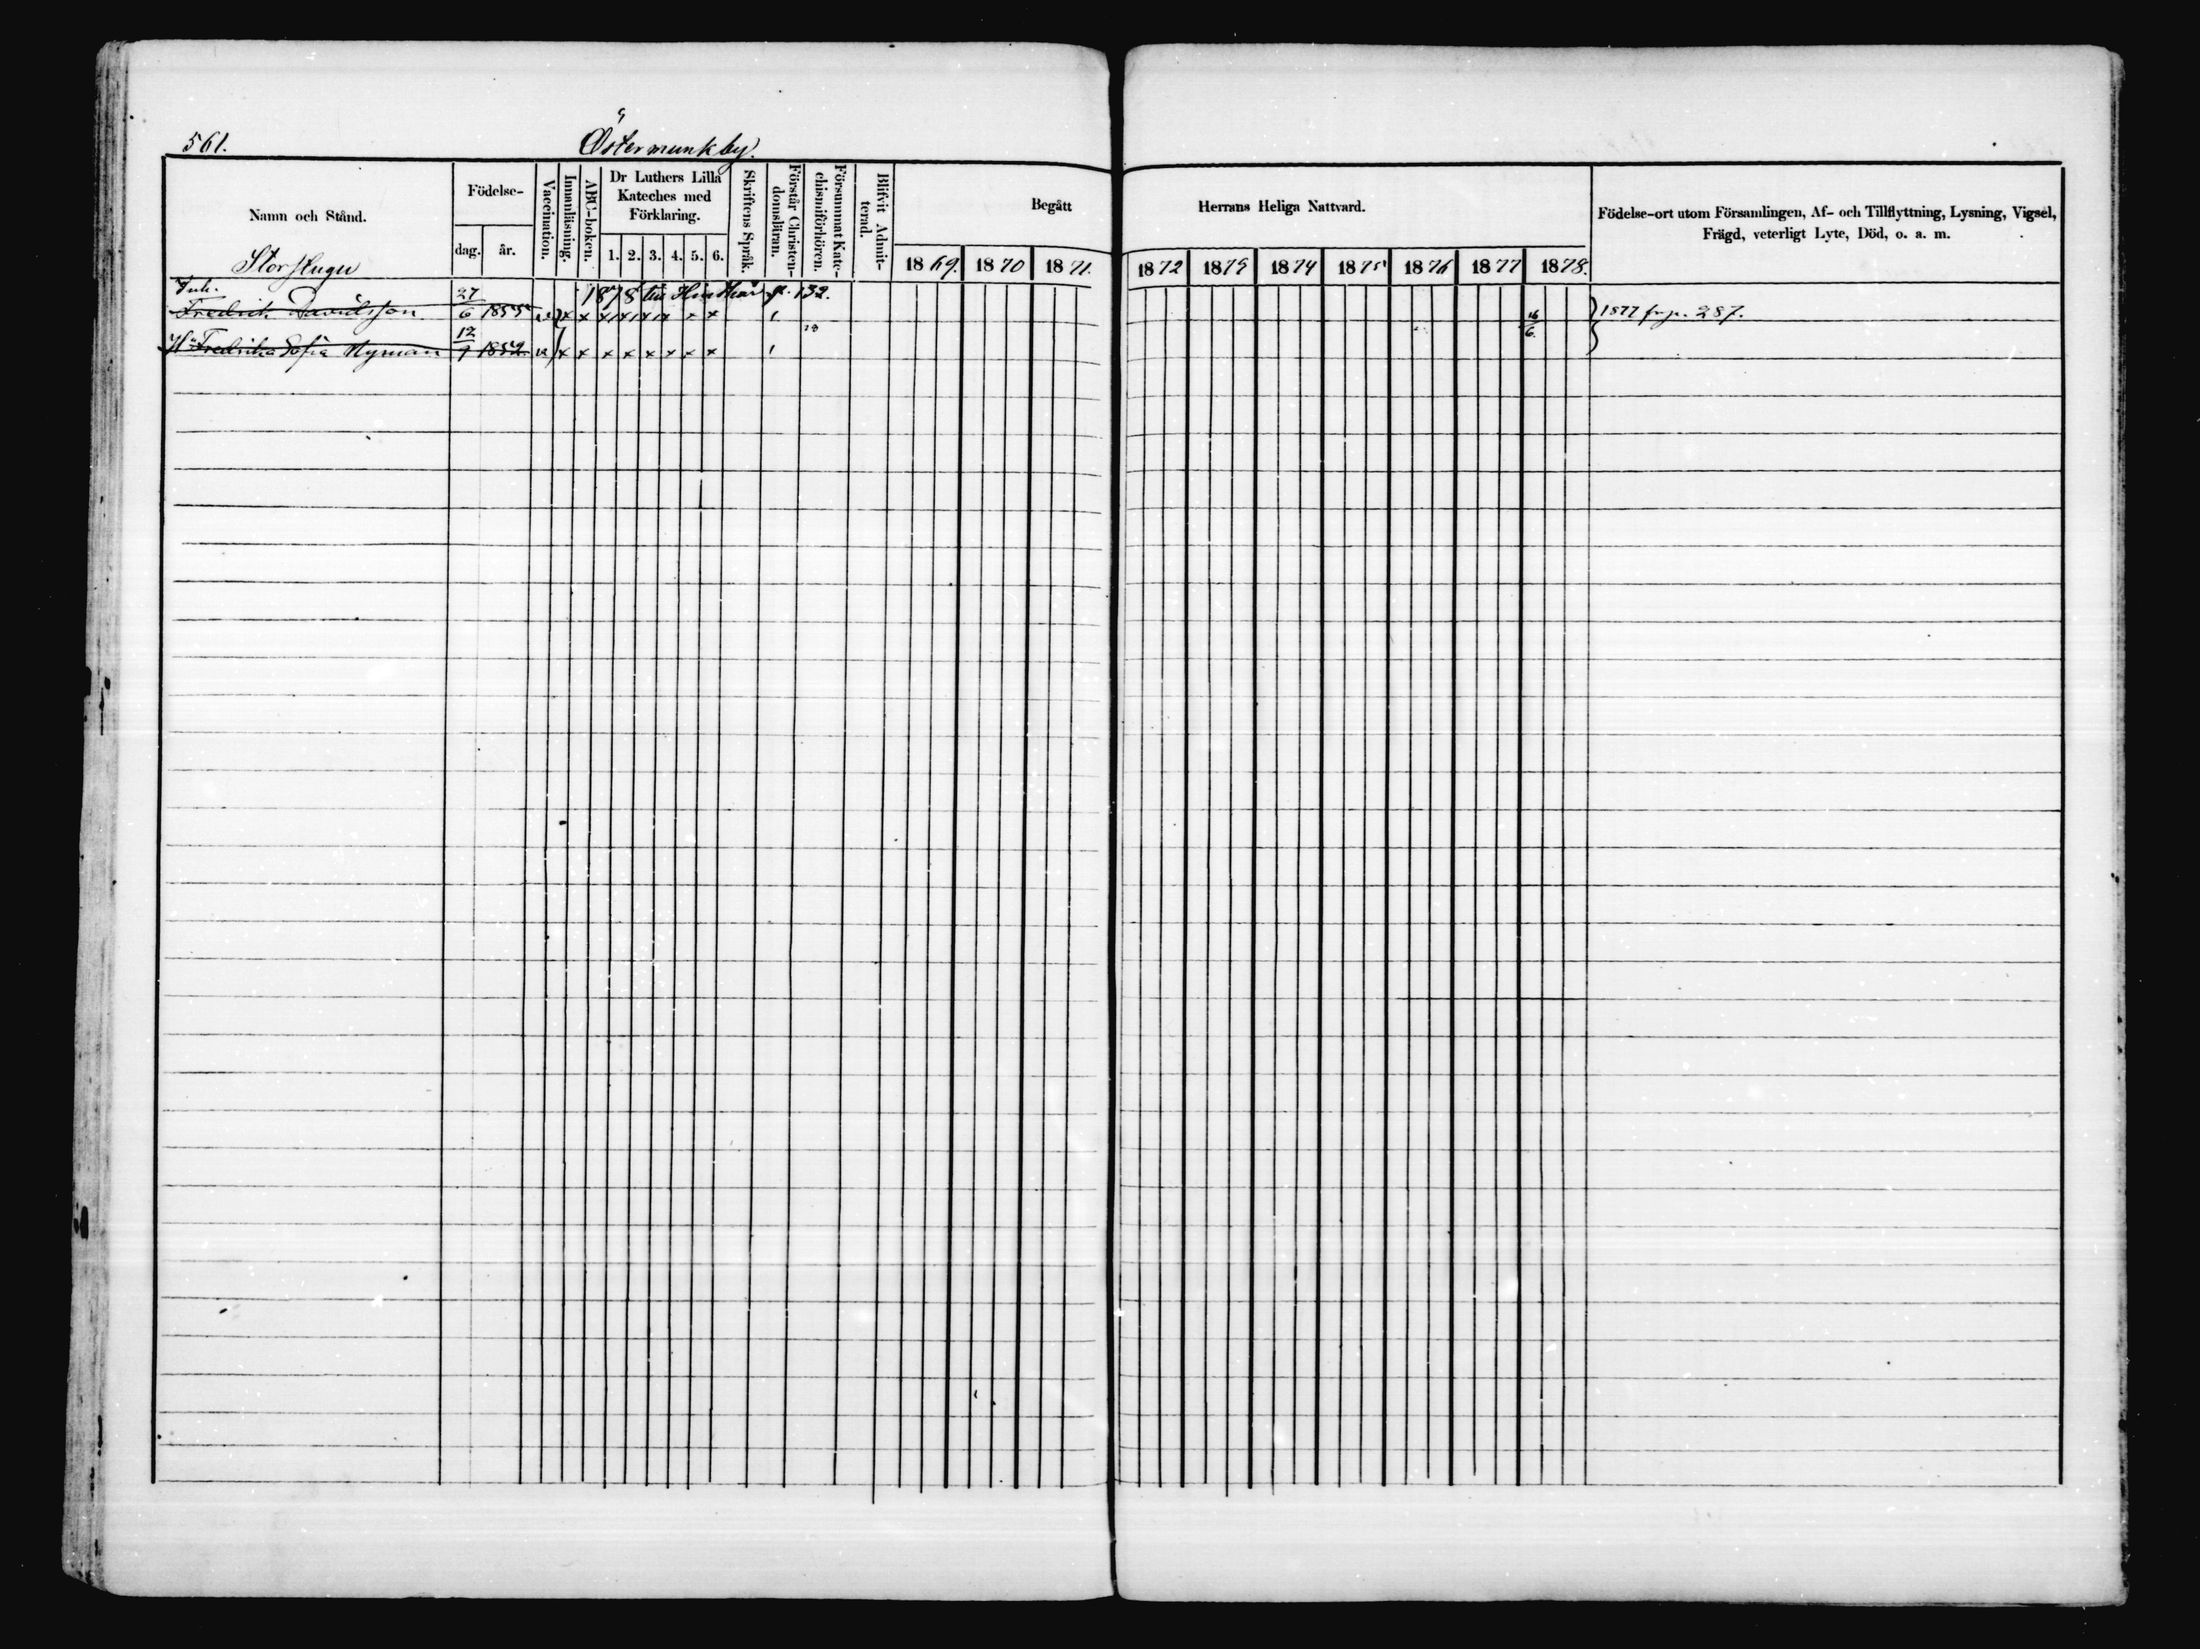 561.
Östermunkby.
Namn och Stånd.
Födelse-
dag.
år.
Vaccination.
Innanläsning.
ABC-boken.
Dr Luthers Lilla
Kateches med
Förklaring.
1. 2. 3. 4. 5. 6.
Skriftens Språk.
Förstår Christen-
domsläran.
Försummat Kate-
chismiförhören.
Blifvit Admit-
terad.
Begått
Herrans Heliga Nattvard.
1869. 1870 1871. 1872 1873 1874 1875 1876 1877 1878.
Födelse-ort utom Församlingen, Af- och Tillflyttning, Lysning, Vigsel,
Frägd, veterligt Lyte, Död, o. a. m.
Inh. 27 1878 p. 132.
Fredrik Davidsson 6 1855 v x x x x x x x x 16/6 1877 fr. p. 287.
12
H. Fredrika Sofia Nyman 9 1852 v x x x x x x x x